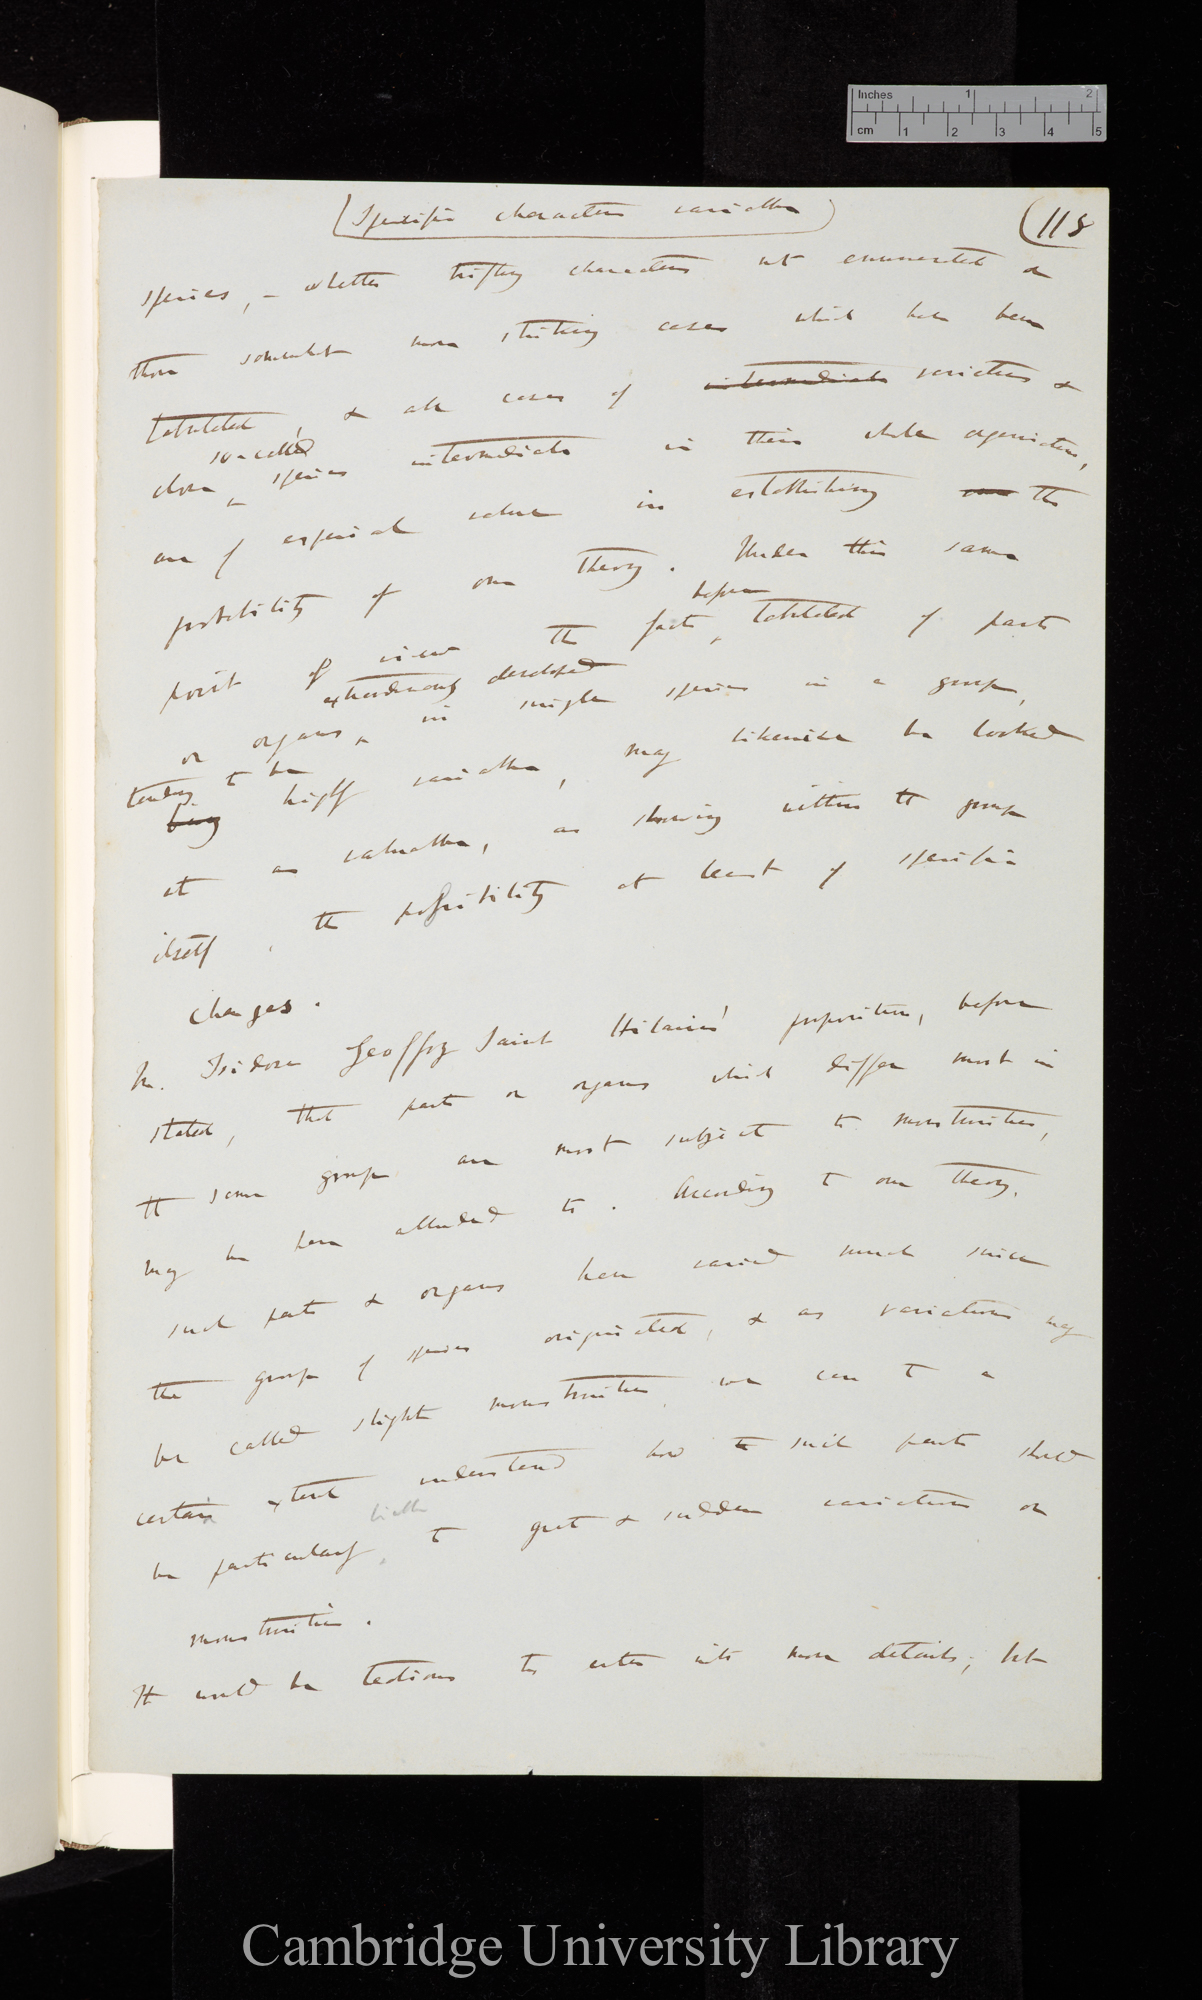 Inches 1 2
cm 1 2 3 4 5
(Specific characters variable)
(118
species, – whether trifling characters not enumerated or
those somewhat more striking cases which have been
tabulated, & all cases of intermediate varieties &
so-called
close species intermediate in their whole organisation,
are of especial value in establishing the
probability of our theory. Under this same
before
point of view the facts, tabulated of parts
extraordinarily developed
or organs, in single species in a group,
tending to be
being highly variable, may likewise be looked
at as valuable, as showing within the group
itself, the possibility at least of specific
changes.
M. Isidore Geoffroy Saint Hilaire's proposition, before
stated, that parts or organs which differ most in
the same group are most subject to monstrosities,
may be here alluded to. According to our theory,
such parts & organs have varied much since
the group of species originated, & as variations may
be called slight monstrosities, we can to a
certain extent understand how it such parts should
liable
be particularly, to great & sudden variations or
monstrosities.
It would be tedious to enter into more details; but
Cambridge University Library